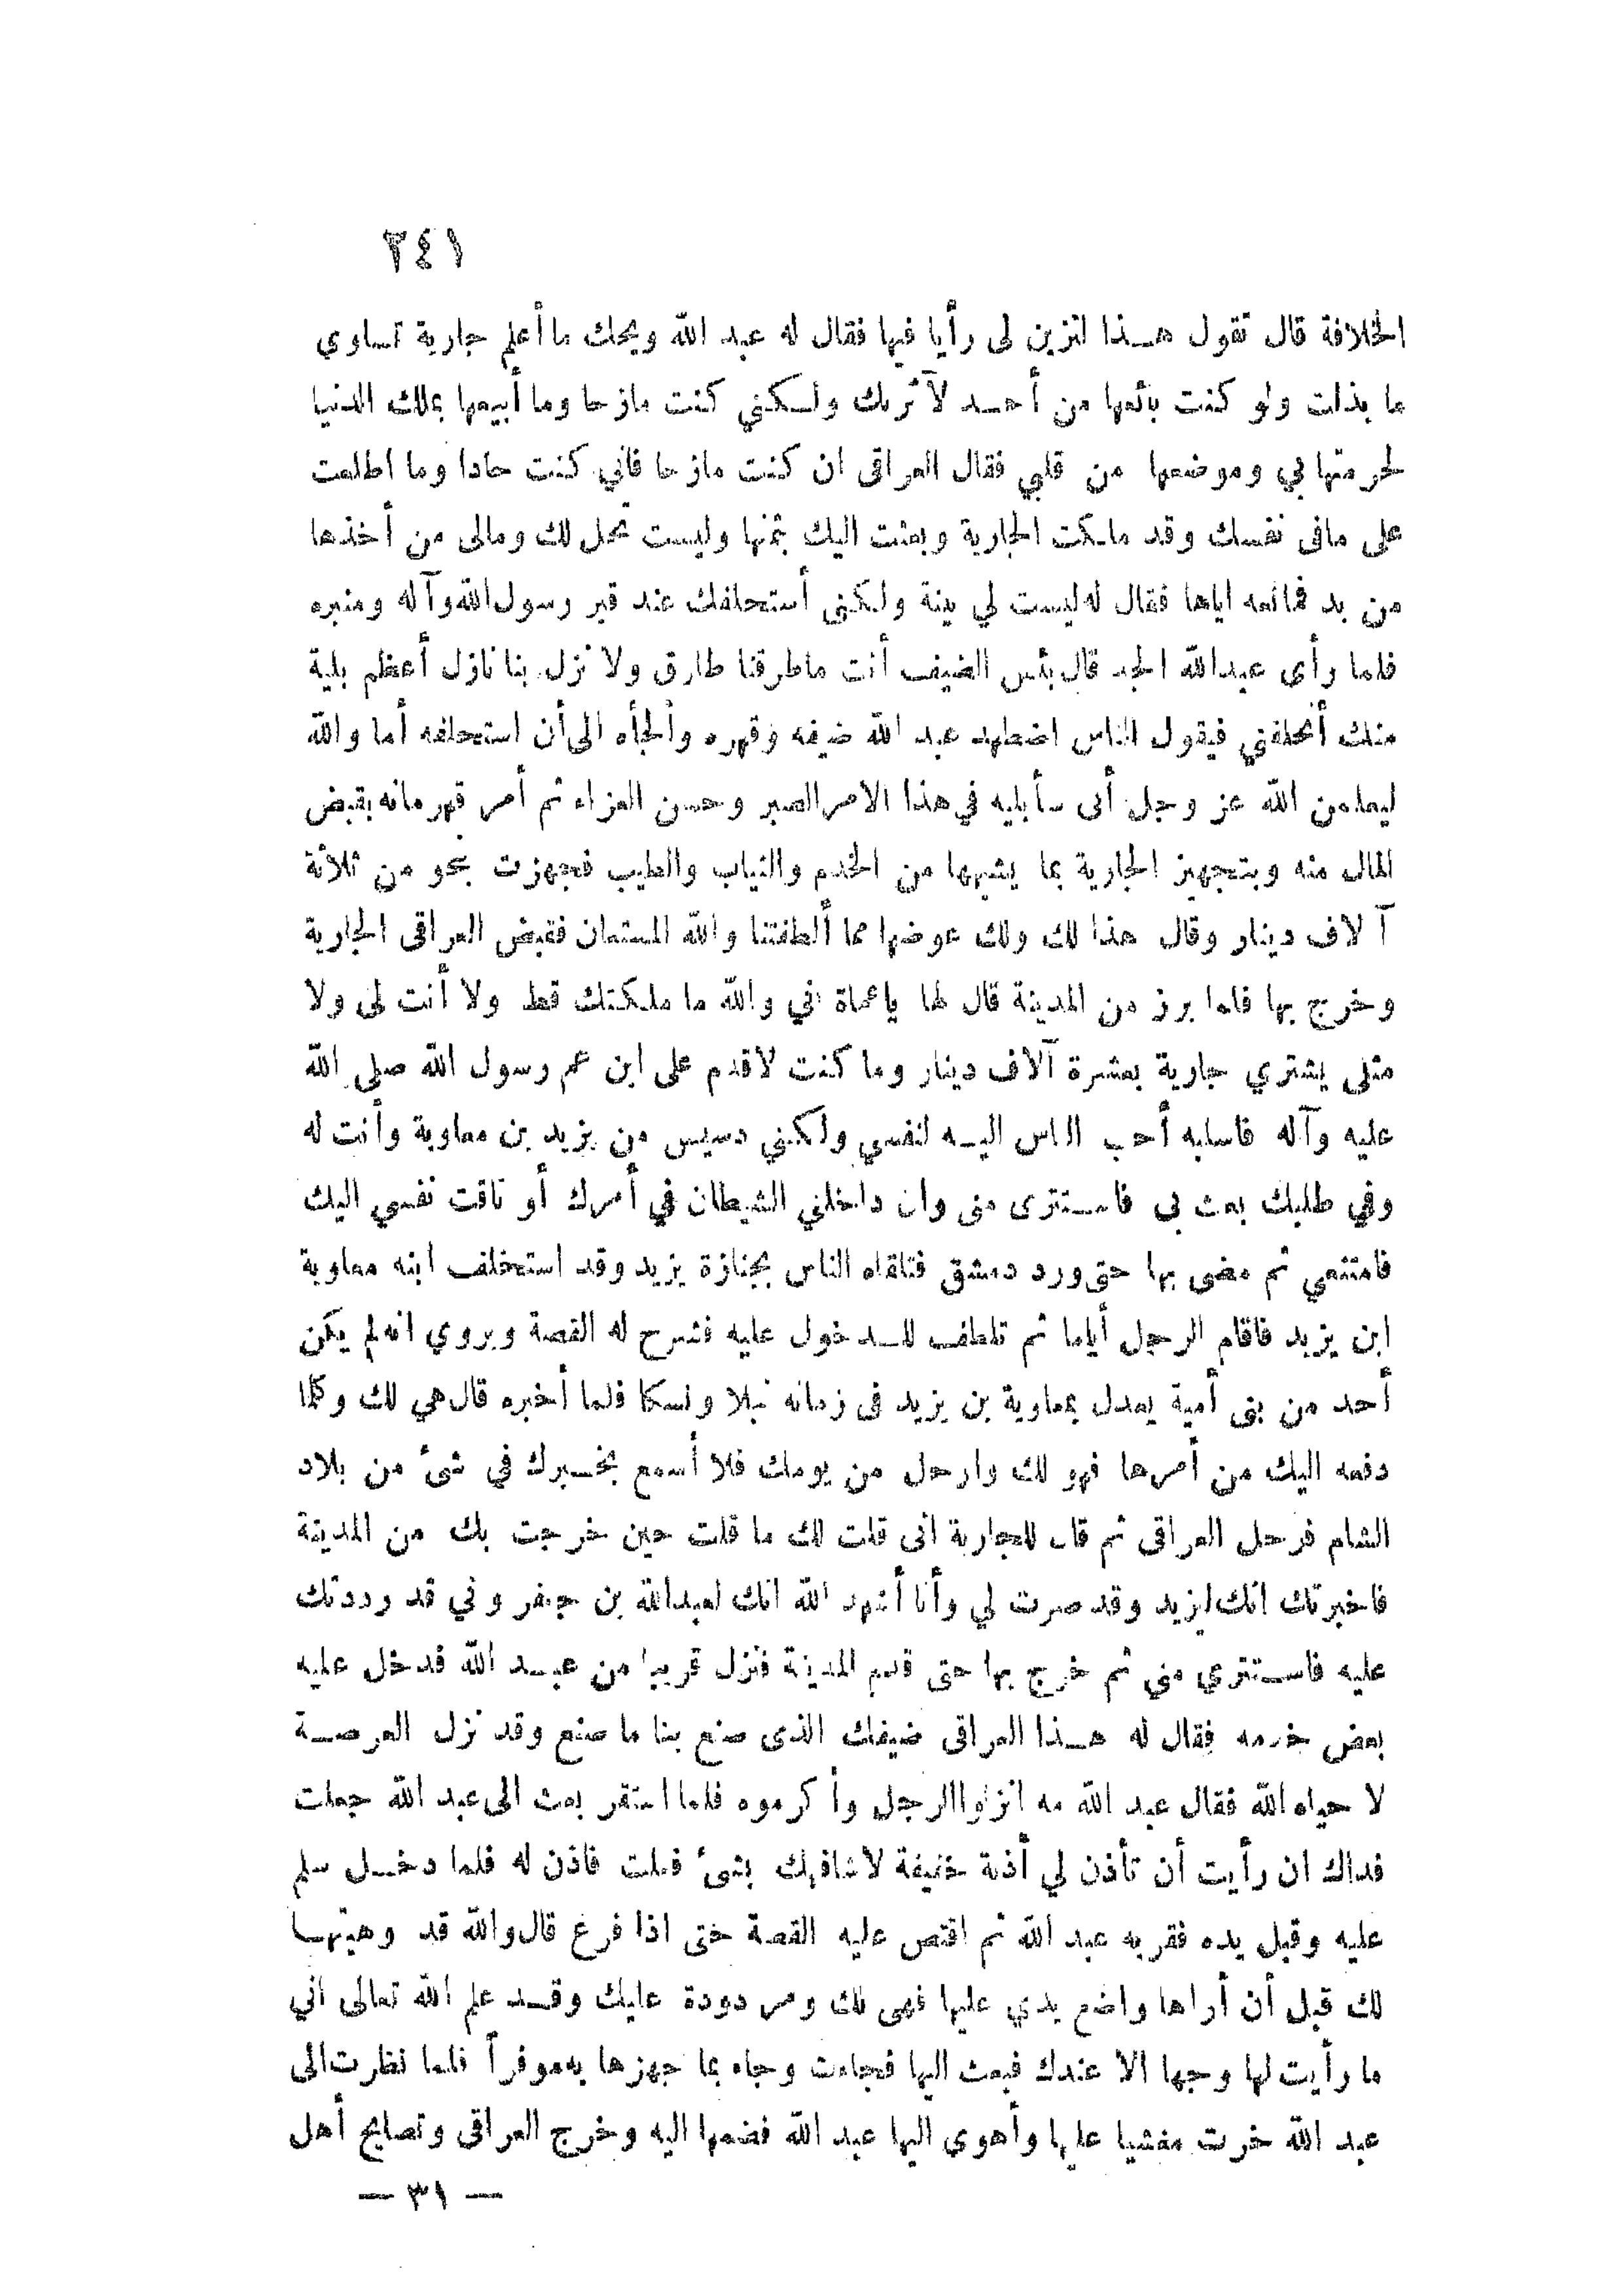 ٢٤١
الخلافة قال تقول هـذا لتزين لى رأيا فيها فقال له عبد الله ويحك ما أعلم جارية تساوي
ما بذلت ولو كنت بائعها من أحـد لآثرتك ولـكني كنت مازحا وما أبيعها بملك الدنيا
لحرمتها بي وموضعها من قلبي فقال العراقى ان كنت مازحا فأني كنت جادا وما اطلعت
على مافى نفسك وقد ملـكت الجارية وبعثت اليك بثمنها وليست تحل لك ومالى من أخذها
من بد فمانعه اياها فقال له ليست لي بينة ولكنى أستحلفك عند قبر رسول الله وآله ومنبره
فلما رأى عبدالله الجد قال بئس الضيف أنت ماطرقنا طارق ولا نزل بنا نازل أعظم بلية
منك أتحلفني فيقول الناس اضطهد عبد الله ضيفه وقهره وألجأه الى أن استحلفه أما والله
ليعلمن الله عز وجل أنى سأبليه في هذا الامر الصبر وحسن العزاء ثم أمر قهرمانه بقبض
المال منه وبتجهيز الجارية بما يشبهها من الخدم والثياب والطيب فجهزت بنحو من ثلاثة
آلاف دينار وقال هذا لك ولك عوضها مما ألطفتنا والله المستعان فقبض العراقى الجارية
وخرج بها فلما برز من المدينة قال لها ياعمارة اني والله ما ملـكتك قط ولا أنت لى ولا
مثلى يشتري جارية بعشرة آلاف دينار وما كنت لاقدم على ابن عم رسول الله صلى الله
عليه وآله فاسلبه أحب الناس اليـه لنفسي ولكني دسيس من يزيد بن معاوية وأنت له
وفي طلبك بعث بى فاسـتترى منى وان داخلني الشيطان في أمرك أو تاقت نفسي اليك
فامتنعي ثم مضى بها حتى ورد دمشق فتلقاه الناس بجنازة يزيد وقد استخلف ابنه معاوية
ابن يزيد فاقام الرجل أياما ثم تلطف للـدخول عليه فشرح له القصة ويروي انه لم يكن
أحد من بنى أمية يعدل بمعاوية بن يزيد فى زمانه نبلا ونسكا فلما أخبره قال هي لك وكلما
دفعه اليك من أمرها فهو لك وارحل من يومك فلا أسمع بخـبرك في شئ من بلاد
الشام فرحل العراقى ثم قال للجارية انى قلت لك ما قلت حين خرجت بك من المدينة
فاخبرتك انك ليزيد وقد صرت لي وأنا أشهد الله انك لعبدالله بن جعفر وني قد رددتك
عليه فاسـتتري مني ثم خرج بها حتى قدم المدينة فنزل قريبا من عبـد الله فدخل عليه
بعض خدمه فقال له هـذا العراقى ضيفك الذى صنع بنا ما صنع وقد نزل العرصـة
لا حياه الله فقال عبد الله مه انزلوا الرجل وأكرموه فلما استقر بعث الى عبد الله جعلت
فداك ان رأيت أن تأذن لي أذنة خفيفة لاشافهك بشئ فعلت فاذن له فلما دخـل سلم
عليه وقبل يده فقربه عبد الله ثم اقتص عليه القصة حتى اذا فرغ قال والله قد وهبتهـا
لك قبل أن أراها واضع يدي عليها فهى لك ومردودة عليك وقـد علم الله تعالى اني
ما رأيت لها وجها الا عندك فبعث اليها فجاءت وجاه بما جهزها به موفراً فلما نظرت الى
عبد الله خرت مغشيا عليها وأهوى اليها عبد الله فضمها اليه وخرج العراقى وتصايح أهل
— ٣١ —